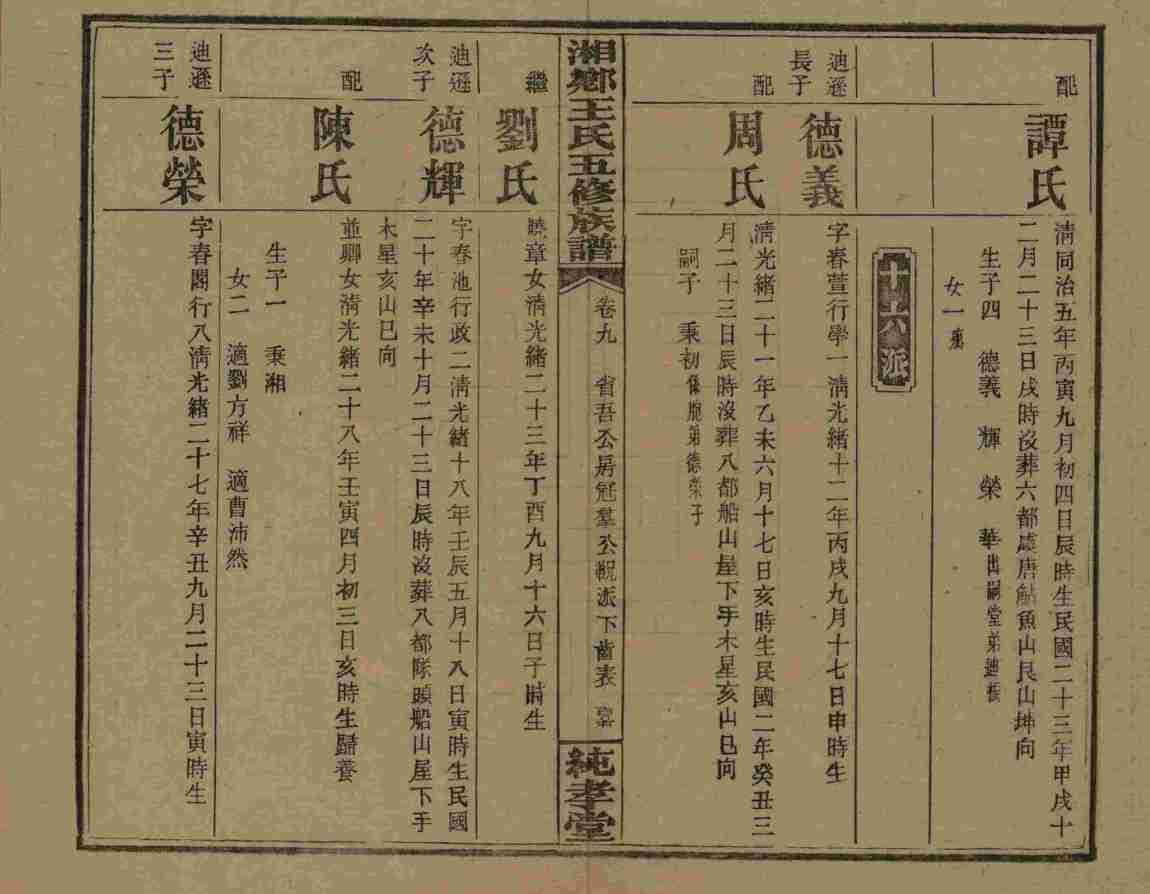 配
譚氏
清同治五年丙寅九月初四日辰時生民國二十三年甲戌十
二月二十三日戌時沒葬六都處唐鮎魚山艮山坤向
生子四 德義 輝 榮 華出嗣堂弟迪
女一殤
十六派
迪遜長子
德義
字春萱行學一清光緒十二年丙戌九月十七日申時生
配
周氏
清光緒二十一年乙未六月十七日亥時生民國二年癸丑三
月二十三日辰時沒葬八都船山屋下手木星亥山巳向
嗣子 秉初係胞弟德榮子
湘鄉王氏五修族譜
卷九 省吾公房冠羣公覬派下齒表
純孝堂
繼
劉氏
曉章女清光緒二十三年丁酉九月十六日子時生
迪遜次子
德輝
字春池行政二清光緒十八年壬辰五月十八日寅時生民國
二十年辛未十月二十三日辰時沒葬八都隊頭船山屋下手
木星亥山巳向
配
陳氏
並卿女清光緒二十八年壬寅四月初三日亥時生歸養
生子一 秉湘
女二 適劉方祥 適曹沛然
迪遜三子
德榮
字春閣行八清光緒二十七年辛丑九月二十三日寅時生